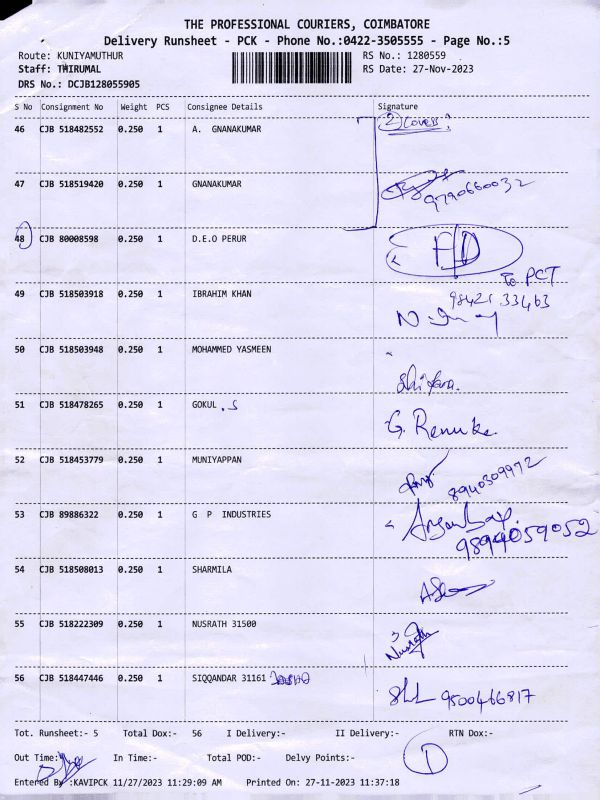 THE PROFESSIONAL COURIERS, COIMBATORE
Delivery Runsheet - PCK - Phone No.:0422-3505555 - Page No.:5
Route: KUNIYAMUTHUR RS No.: 1280559
Staff: THIRUMAL RS Date: 27-Nov-2023
DRS No.: DCJB128055905
S No Consignment No Weight PCS Consignee Details Signature
46 CJB 518482552 0.250 1 A. GNANAKUMAR 2 Covers
47 CJB 518519420 0.250 1 GNANAKUMAR 9790660032
48 CJB 80008598 0.250 1 D.E.O PERUR
to PCT
49 CJB 518503918 0.250 1 IBRAHIM KHAN 98421 33463
50 CJB 518503948 0.250 1 MOHAMMED YASMEEN
51 CJB 518478265 0.250 1 GOKUL .S G. Renuka
52 CJB 518453779 0.250 1 MUNIYAPPAN 8940309972
53 CJB 89886322 0.250 1 G P INDUSTRIES
9894059052
54 CJB 518508013 0.250 1 SHARMILA
55 CJB 518222309 0.250 1 NUSRATH 31500 Nusrath
56 CJB 518447446 0.250 1 SIQQANDAR 31161 9500466817
Tot. Runsheet:- 5 Total Dox:- 56 I Delivery:- II Delivery:- RTN Dox:-
1
Out Time: In Time:- Total POD:- Delvy Points:-
Entered By :KAVIPCK 11/27/2023 11:29:09 AM Printed On: 27-11-2023 11:37:18